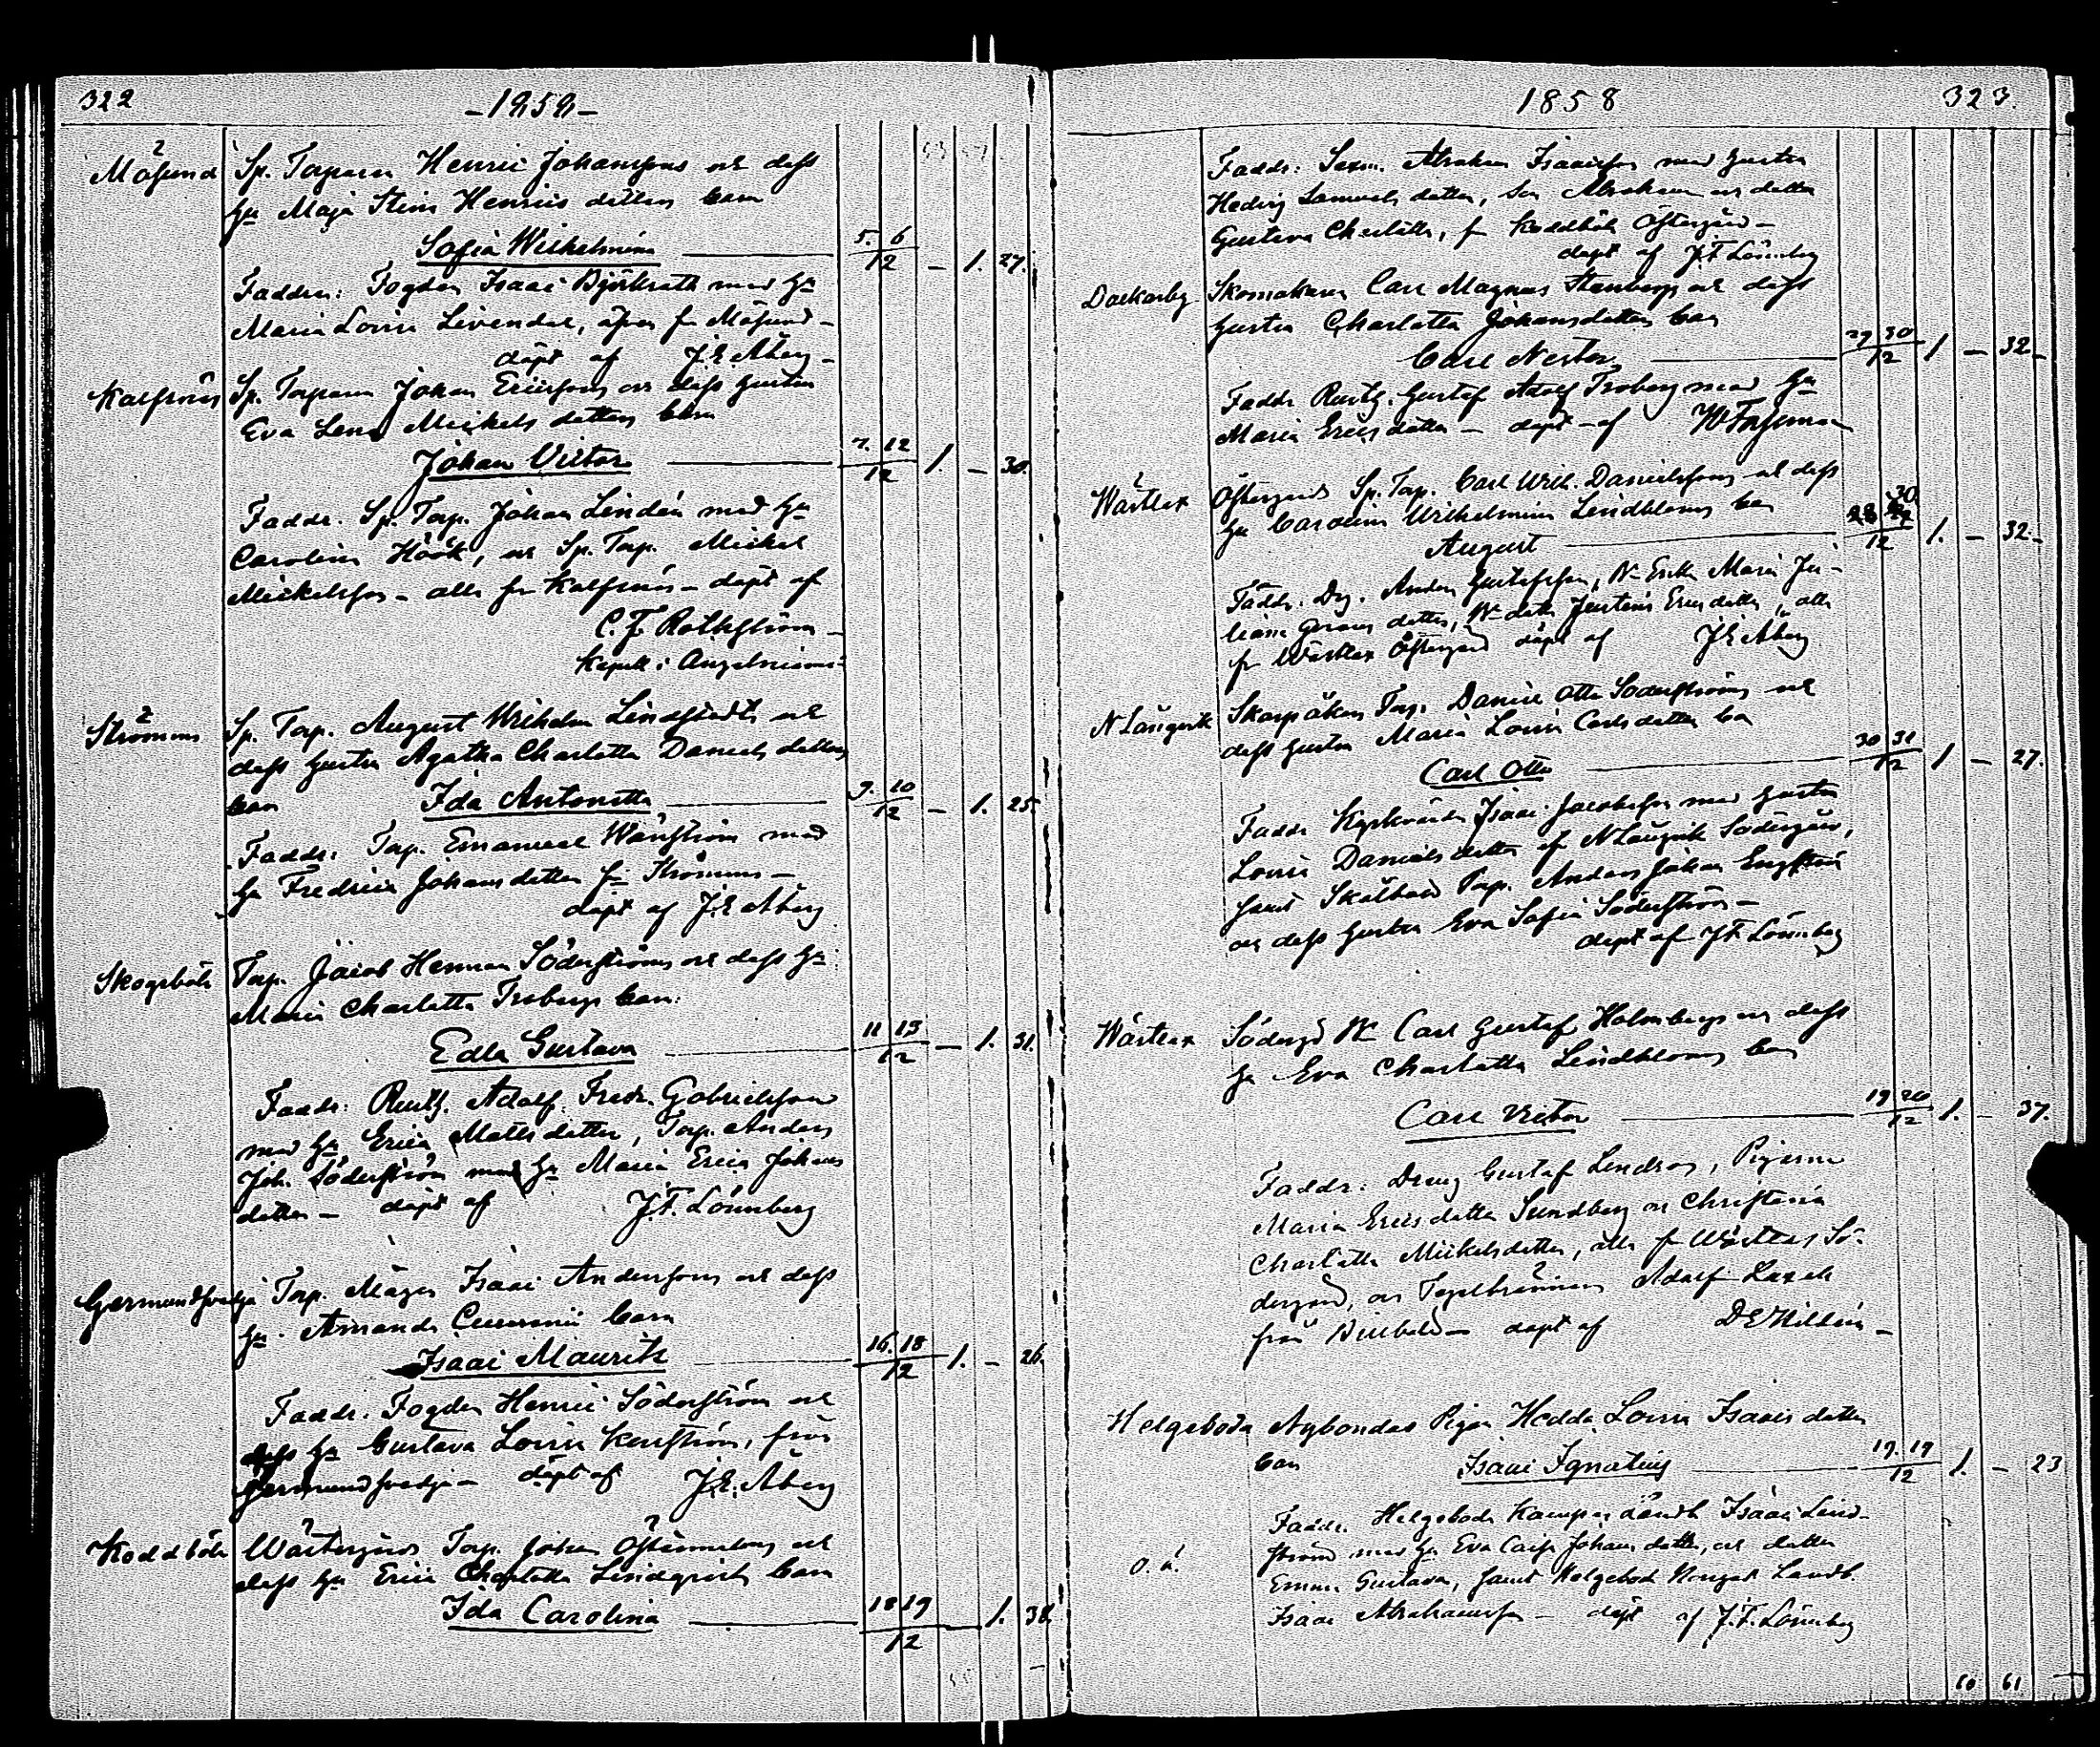 322
-1858-
Måsund Sp. Torparen Henric Johanssons och dess
Hu Maja Stina Henrics dotters barn
Sofia Wilhelmina 5. 6 12 - 1. 27.
Faddrar: Fogden Isaac Björkrath med Hu
Maria Lovisa Livendal, äfven fr Måsund -
döpt af J. E. Åberg -
Kalfsnäs Sp. Torparen Johan Ericssons och dess hustru
Eva Lena Mickels dotters barn
Johan Victor 7. 12 12 1. - 30.
Faddr. Sp. Torp. Johan Lindén med Hu
Carolina Höök, och Sp. Torp. Mickel
Mickelsson - alla fr Kalfsnäs - döpt af
C. F. Rothström -
Kapell: i Angelniemi
Strömma Sp. Torp. August Wilhelm Lindstedts och
dess hustru Agatha Charlotta Daniels dotters
barn Ida Antonetta 9. 10 12 - 1. 25.
Faddr. Torp. Emanuel Wänström med
Hu Fredrica Johansdotter fr Strömma -
döpt af J. E. Åberg
Skogsböle Torp. Jacob Herman Söderströms och dess Hu
Maria Charlotta Trobergs barn:
Edla Gustava 11 13 12 - 1. 31.
Faddr: Rusth. Adolf Fredr. Gabrielsson
med Hu Erica Matts dotter, Torp. Anders
Joh. Söderström med Hu Maria Erica Johans
dotter - döpt af J. F. Lönnberg
Germundsvedja Torp. Måger Isaac Anderssons och dess
Hu. Amanda barn
Isaac Mauritz 16. 18 12 1. - 26.
Faddr. Fogden Henric Söderström och
dess Hu Gustava Lovisa Kenström, från
Germundsvedja - döpt af J. E. Åberg
Koddböle Wästergårds Torp. Johan och
dess Hu Erica Charlotta Lindqvists barn
Ida Carolina 18 19 12 1. 38.
1858
323.
Faddr: Sexm. Abraham Isaacsson med hustru
Hedvig Samuels dotter, Son Abraham och dotter
Gustava Charlotta, fr Koddböle Östergård -
döpt af J. F. Lönnberg
Dalkarby Skomakaren Carl Magnus Stenbergs och dess
hustru Charlotta Johansdotters barn
Carl Nestor 29 30 12 1 - 32
Faddr Rusth. Gustaf Adolf Troberg med Hu
Maria Ericsdotter - döpt - af
Wärtlax Östergårds Sp. Torp. Carl Wilh. Danielssons och dess
Hu Carolina Wilhelmina Lindbloms barn
August 30 12 1. - 32.
Faddr. Drg. Anders Gustafsson, Maria Ju-
liana dotter, Justina Ericsdotter, alla
fr Wärtlax Östergård döpt af J. E. Åberg
N Långvik Skarpåkers Torp. Daniel Otto Söderströms och
dess hustru Maria Lovisa Carlsdotters barn
Carl Otto 30 31 12 1 - 27.
Faddr Kyrkvärden Isaac Jacobsson med hustru
Lovisa Danielsdotter af N Långvik Södergård,
samt Skålbola Torp. Anders Johan Engström
och dess hustru Eva Sofia Söderström -
döpt af J. F. Lönnberg
Wärtlax Södergd Carl Gustaf Holmbergs och dess
Hu Eva Charlotta Lindbloms barn
Carl Victor 19 20 12 1. - 37.
Faddr: Dreng Gustaf Lindros, Pigorna
Maria Ericsdotter Sundberg och Christina
Charlotta Mickelsdotter, alla fr Wärtlax Sö-
dergård, och Tegelbrännaren Adolf Laxell
från - döpt af D E Hildén -
Helgeboda Nybondas Pigan Hedda Lovisa Isaacs dotter
barn Isaac Ignatius 19. 19 12 1. - 23
o. ä. Faddr. Helgeboda Landb Isaac Lind-
ström med Hu Eva Caisa Johansdotter, och dotter
Emma Gustava, samt Helgeboda Norrgård Landb.
Isaac Abrahamsson - döpt af J. F. Lönnberg
60 61